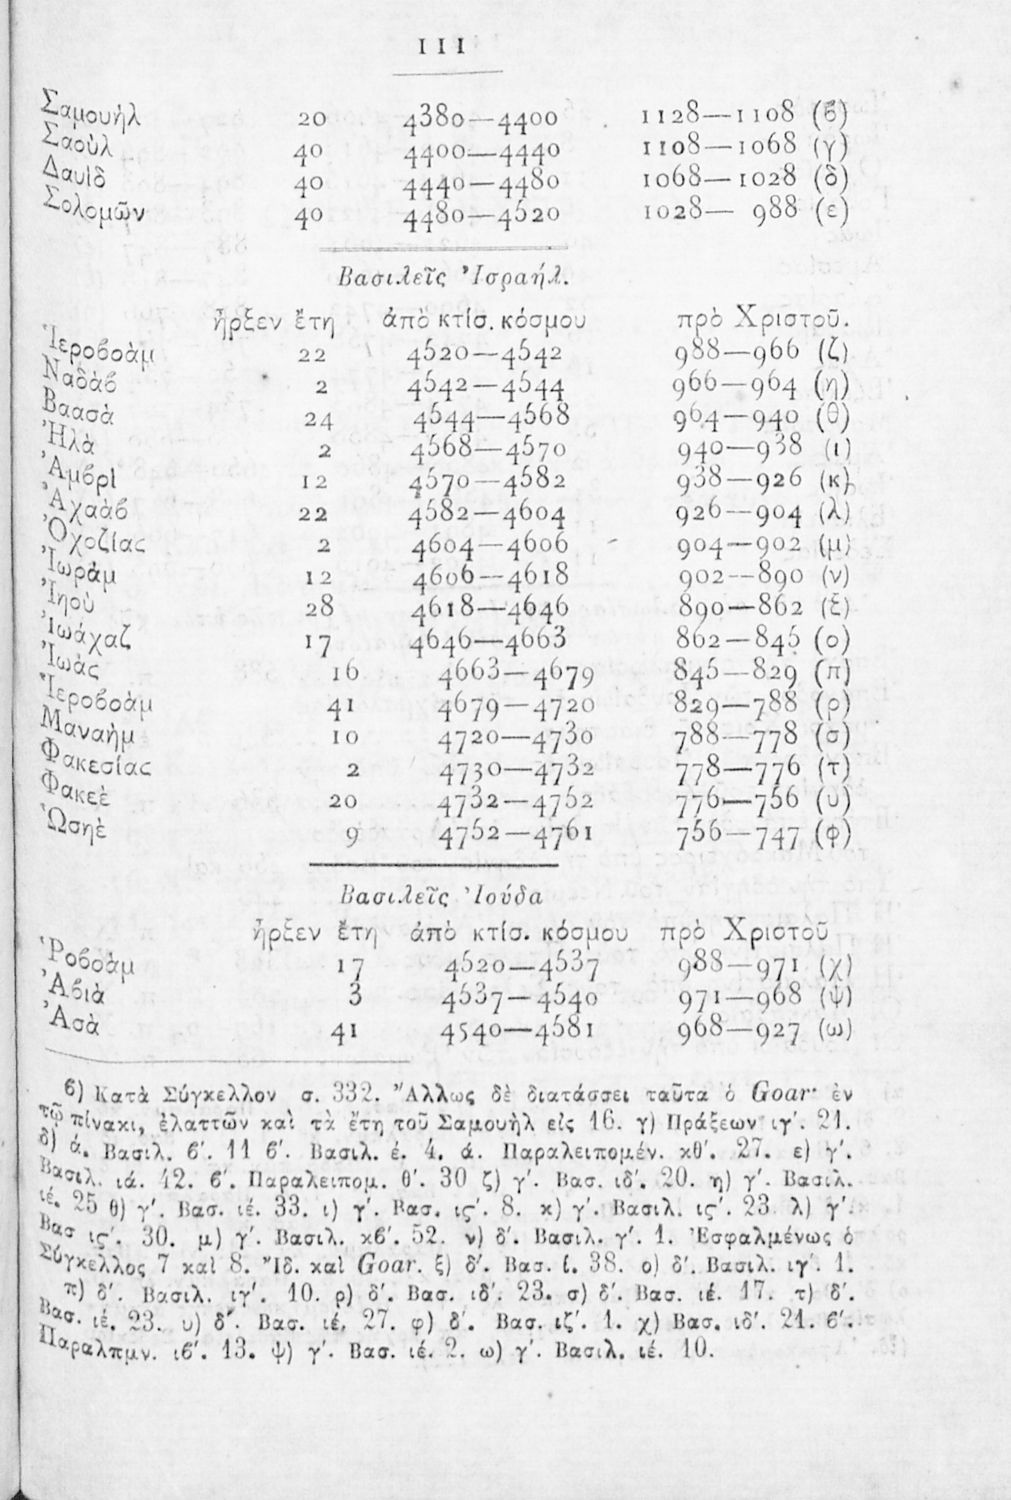 III
Σαμουὴλ 20 4380—4400 1128—1108 (ϐ)
Σαοὺλ 40 4400—4440 1108—1068 (γ)
Δαυὶδ 40 4440—4480 1068—1028 (δ)
Σολομῶν 40 4480—4520 1028— 988 (ε)
Βασιλεῖς Ἰσραήλ.
ἦρξεν ἔτη ἀπὸ κτίσ. κόσμου πρὸ Χριστοῦ.
Ἱεροϐοὰμ 22 4520—4542 988—966 (ζ)
Ναδὰϐ 2 4542—4544 966—964 (η)
Βαασὰ 24 4544—4568 964—940 (θ)
Ἠλὰ 2 4568—4570 940—938 (ι)
Ἀμϐρὶ 12 4570—4582 938—926 (κ)
Ἀχαὰϐ 22 4582—4604 926—904 (λ)
Ὀχοζίας 2 4604—4606 904—902 (μ)
Ἰωρὰμ 12 4606—4618 902—890 (ν)
Ἰηοὺ 28 4618—4646 890—862 (ξ)
Ἰωάχαζ 17 4646—4663 862—845 (ο)
Ἰωὰς 16 4663—4679 845—829 (π)
Ἱεροϐοὰμ 41 4679—4720 829—788 (ρ)
Μαναὴμ 10 4720—4730 788—778 (σ)
Φακεσίας 2 4730—4732 778—776 (τ)
Φακεὲ 20 4732—4752 776—756 (υ)
Ὡσηὲ 9 4752—4761 756—747 (φ)
Βασιλεῖς Ἰούδα
ἦρξεν ἔτη ἀπὸ κτίσ. κόσμου πρὸ Χριστοῦ
Ῥοϐοὰμ 17 4520—4537 988—971 (χ)
Ἀϐιὰ 3 4537—4540 971—968 (ψ)
Ἀσὰ 41 4540—4581 968—927 (ω)
ϐ) Κατὰ Σύγκελλον σ. 332. Ἄλλως δὲ διατάσσει ταῦτα ὁ Goar· ἐν
τῷ πίνακι, ἐλαττῶν καὶ τὰ ἔτη τοῦ Σαμουὴλ εἰς 16. γ) Πράξεων ιγ΄. 21.
δ) ά. Βασιλ. ϐ΄. 11 ϐ΄. Βασιλ. έ. 4. ά. Παραλειπομέν. κθ΄. 27. ε) γ΄.
Βασιλ. ιά. 42. ϐ΄. Παραλειπομ. θ΄. 30 ζ) γ΄. Βασ. ιδ΄. 20. η) γ΄. Βασιλ.
ιέ. 25 θ) γ΄. Βασ. ιέ. 33. ι) γ΄. Βασ. ις΄. 8. κ) γ΄. Βασιλ. ις΄. 23. λ) γ΄.
Βασ ις΄. 30. μ) γ΄. Βασιλ. κϐ΄. 52. ν) δ΄. Βασιλ. γ΄. 1. Ἐσφαλμένως ὁ
Σύγκελλος 7 καὶ 8. Ἴδ. καὶ Goar. ξ) δ΄. Βασ. ί. 38. ο) δ΄. Βασιλ. ιγ΄. 1.
π) δ΄. Βασιλ. ιγ΄. 10. ρ) δ΄. Βασ. ιδ΄. 23. σ) δ΄. Βασ. ιέ. 17. τ) δ΄.
Βασ. ιέ. 23. υ) δ΄. Βασ. ιέ. 27. φ) δ΄. Βασ. ιζ΄. 1. χ) Βασ. ιδ΄. 21. ϐ΄.
Παραλπμν. ιϐ΄. 13. ψ) γ΄. Βασ. ιέ. 2. ω) γ΄. Βασιλ. ιέ. 10.